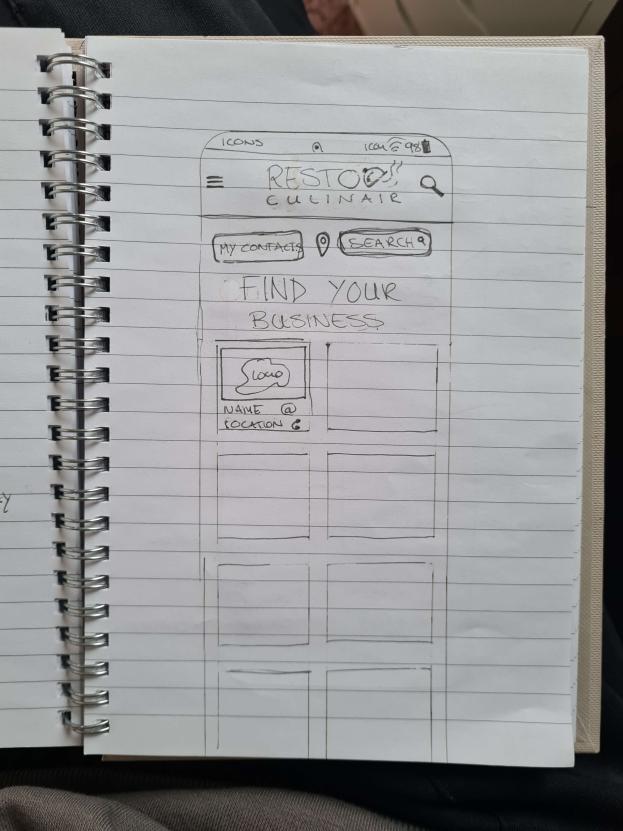 ICONS icon 98
RESTO
CULINAIR
MY CONTACTS SEARCH
FIND YOUR
BUSINESS
LOGO
NAME @
LOCATION